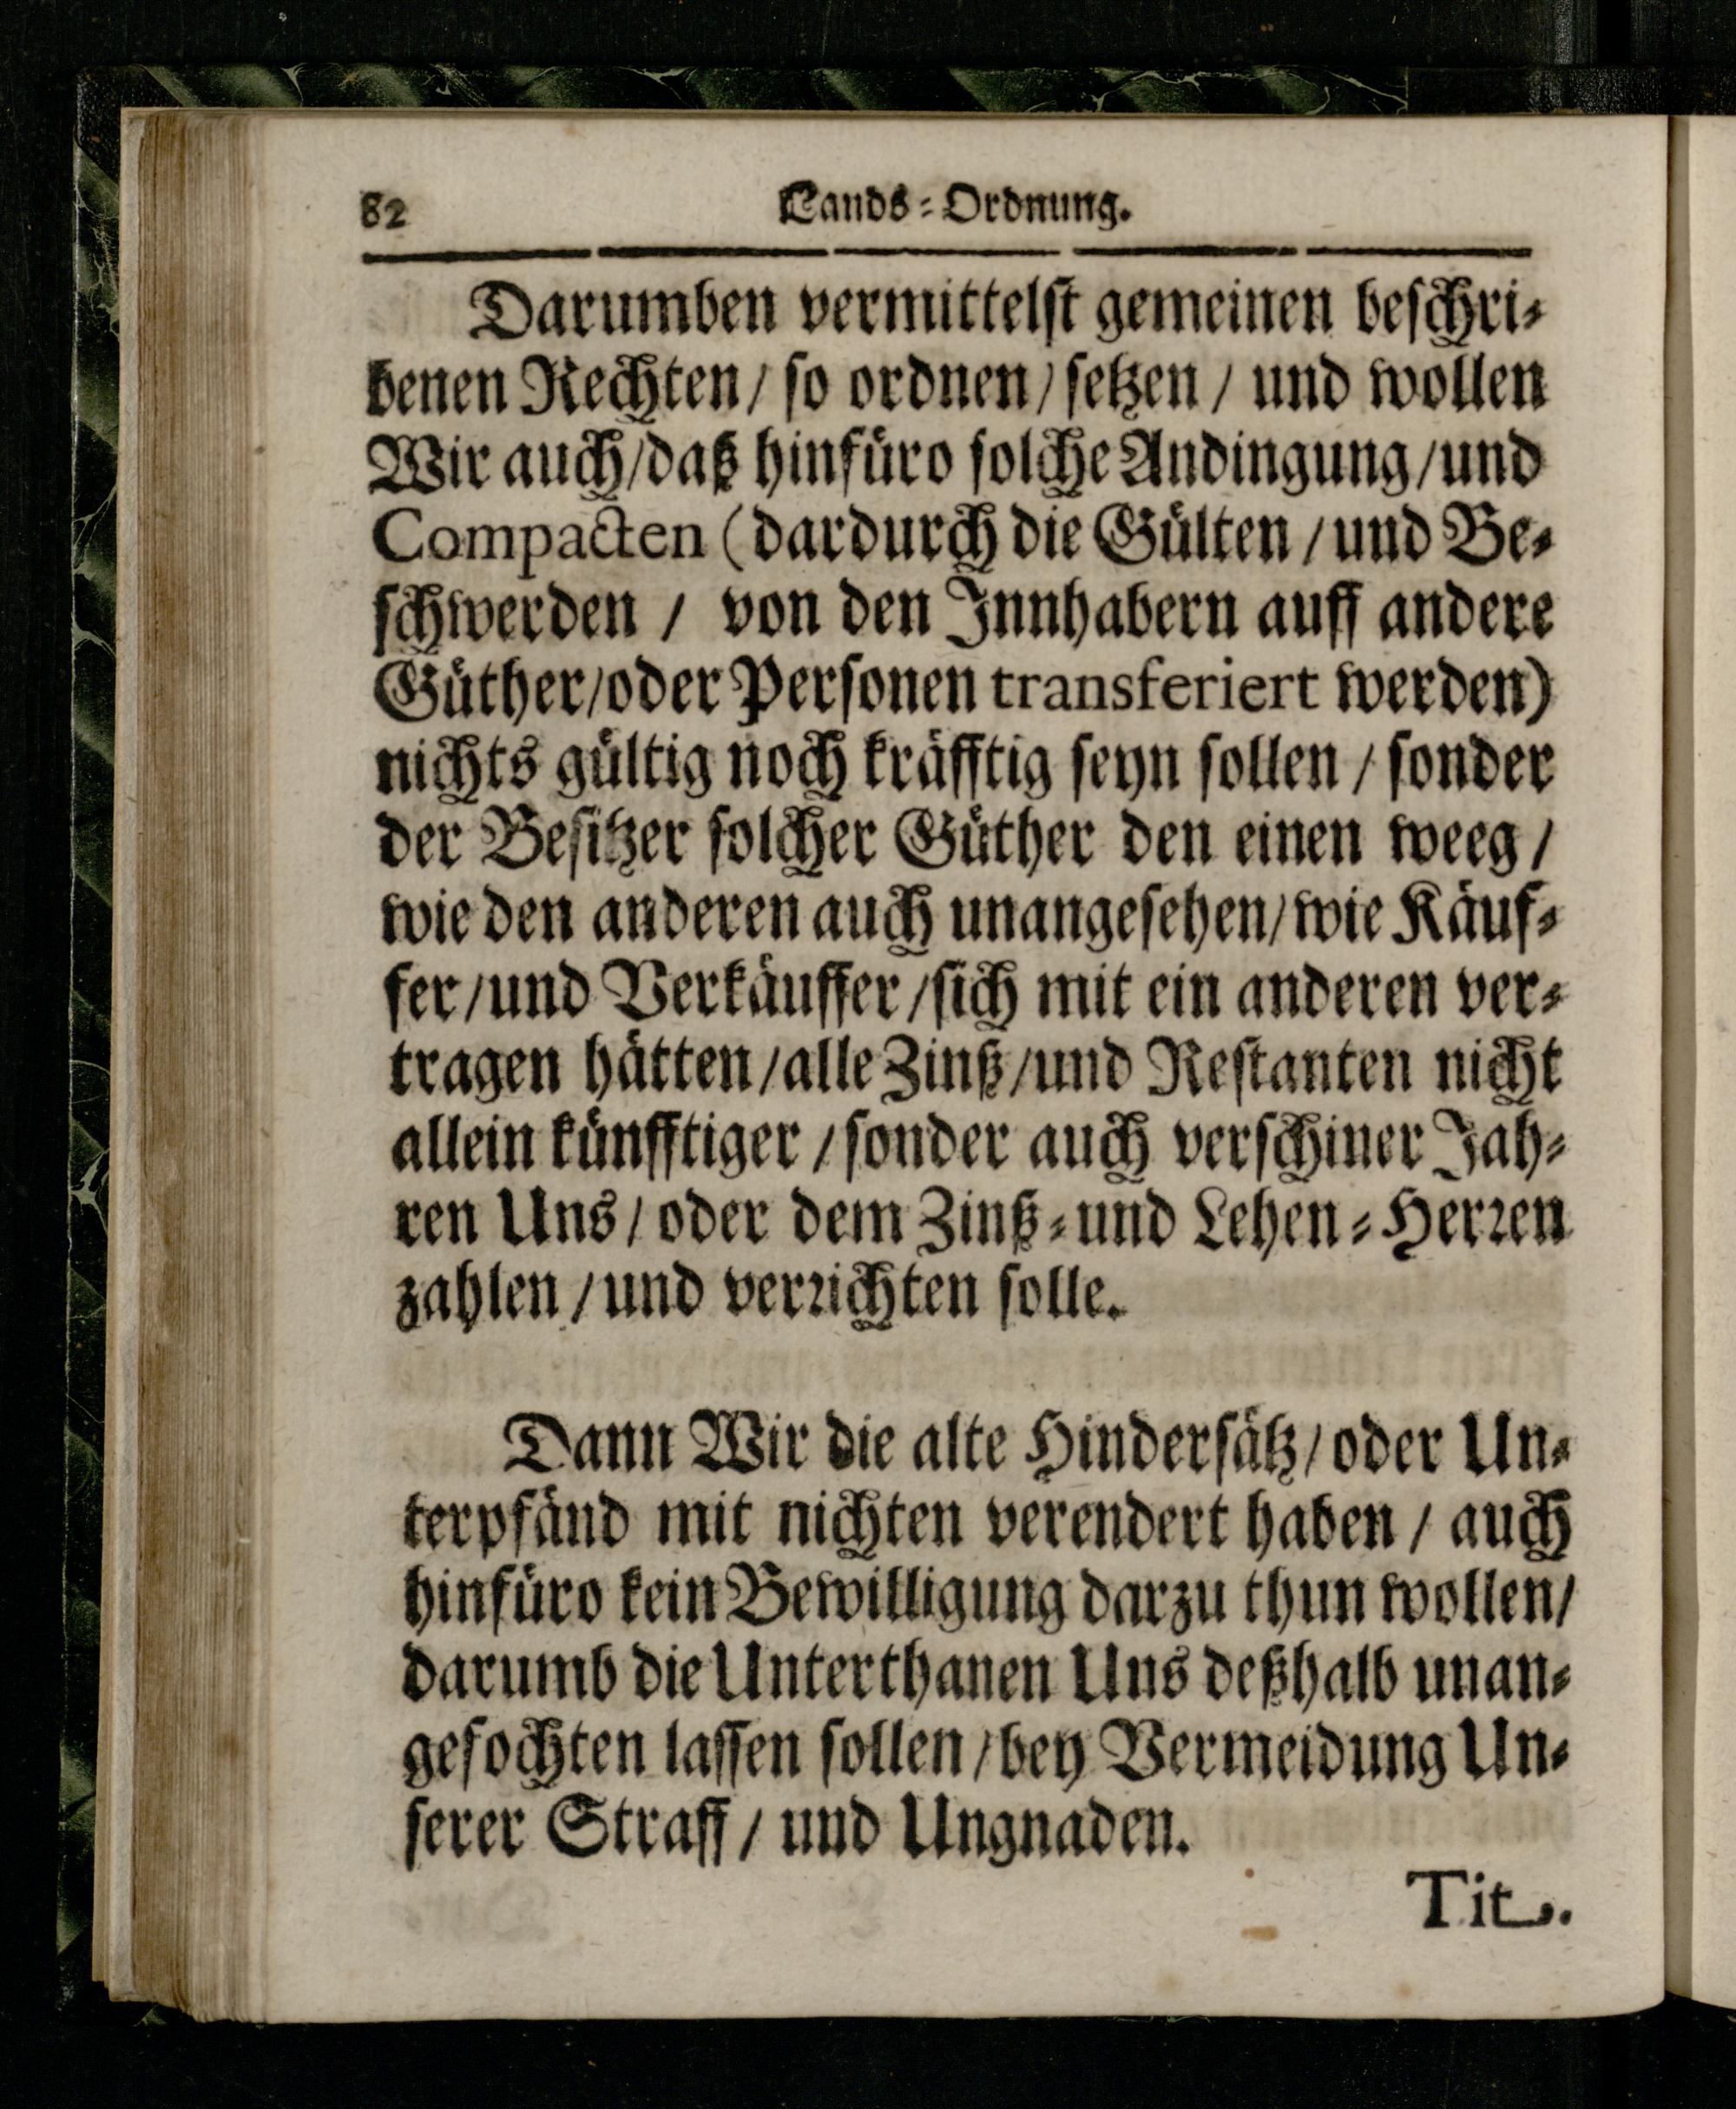 82 Lands-Ordnung.
Darumben vermittelst gemeinen beschri-
benen Rechten / so ordnen / setzen / und wollen
Wir auch / daß hinfüro solche Andingung / und
Compacten (dardurch die Gülten / und Be-
schwerden / von den Innhabern auff andere
Güther / oder Personen transferiert werden)
nichts gültig noch kräfftig seyn sollen / sonder
der Besitzer solcher Güther den einen weeg /
wie den anderen auch unangesehen / wie Käuf-
fer / und Verkäuffer / sich mit ein anderen ver-
tragen hätten / alle Zinß / und Restanten nicht
allein künfftiger / sonder auch verschiner Jah-
ren Uns / oder dem Zinß- und Lehen-Herren
zahlen / und verrichten solle.
Dann Wir die alte Hindersätz / oder Un-
terpfänd mit nichten verendert haben / auch
hinfüro kein Bewilligung darzu thun wollen /
darumb die Unterthanen Uns deßhalb unan-
gefochten lassen sollen / bey Vermeidung Un-
serer Straff / und Ungnaden.
Tit.